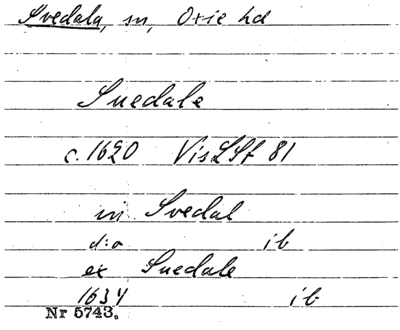 Svedala, sn, Oxie hd
Suedale
c. 1620 VisLSt 81
in Svedal
d:o ib
ex Suedale
1634 ib
Nr 5743.